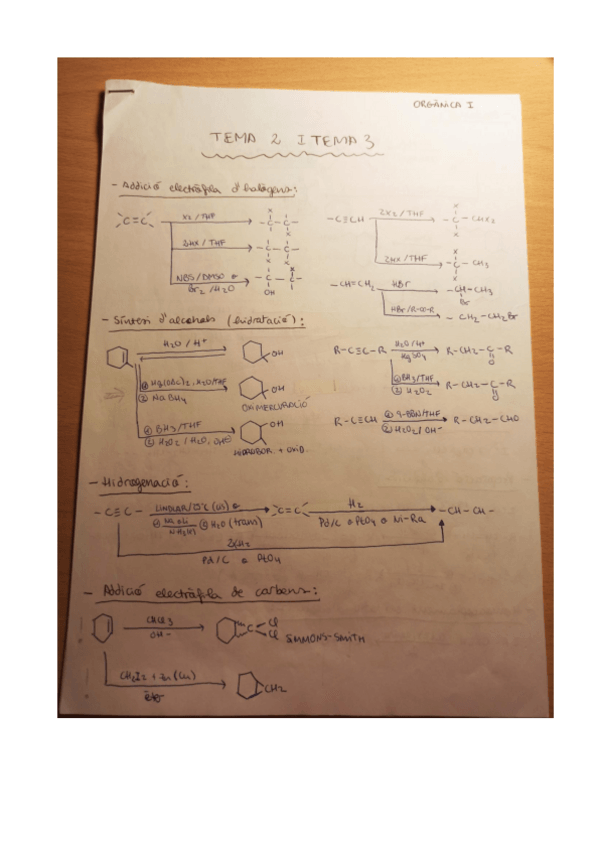 ORGÀNICA I
TEMA 2 I TEMA 3
- Addició electròfila d'halògens:
C=C X2/THF -C-C- X X
2HX/THF -C-C- X
NBS/DMSO o Br2/H2O -C-C- OH X
-C≡CH 2X2/THF -C-CHX2 X X
2HX/THF -C-CH3 X X
-CH=CH2 HBr -CH-CH3 Br
HBr/R-OO-R -CH2-CH2Br
- Síntesi d'alcohols (hidratació):
H2O/H+ OH
① Hg(OAc)2, H2O/THF
② NaBH4 OH
OXIMERCURACIÓ
① BH3/THF
② H2O2/H2O, OH⊖ OH
HIDROBOR. + OXID.
R-C≡C-R H2O/H+ HgSO4 R-CH2-C-R O
① BH3/THF ② H2O2 R-CH2-C-R O
R-C≡CH ① 9-BBN/THF ② H2O2/OH- R-CH2-CHO
- Hidrogenació:
-C≡C- LINDLAR/ (cis) o C=C H2 -CH-CH-
① Na o Li NH3(l) ② H2O (trans) Pd/C o PtO2 o Ni-Ra
2H2
Pd/C o PtO2
- Addició electròfila de carbens:
CHCl3
OH- C Cl Cl SIMMONS-SMITH
CH2I2 + Zn(Cu)
CH2